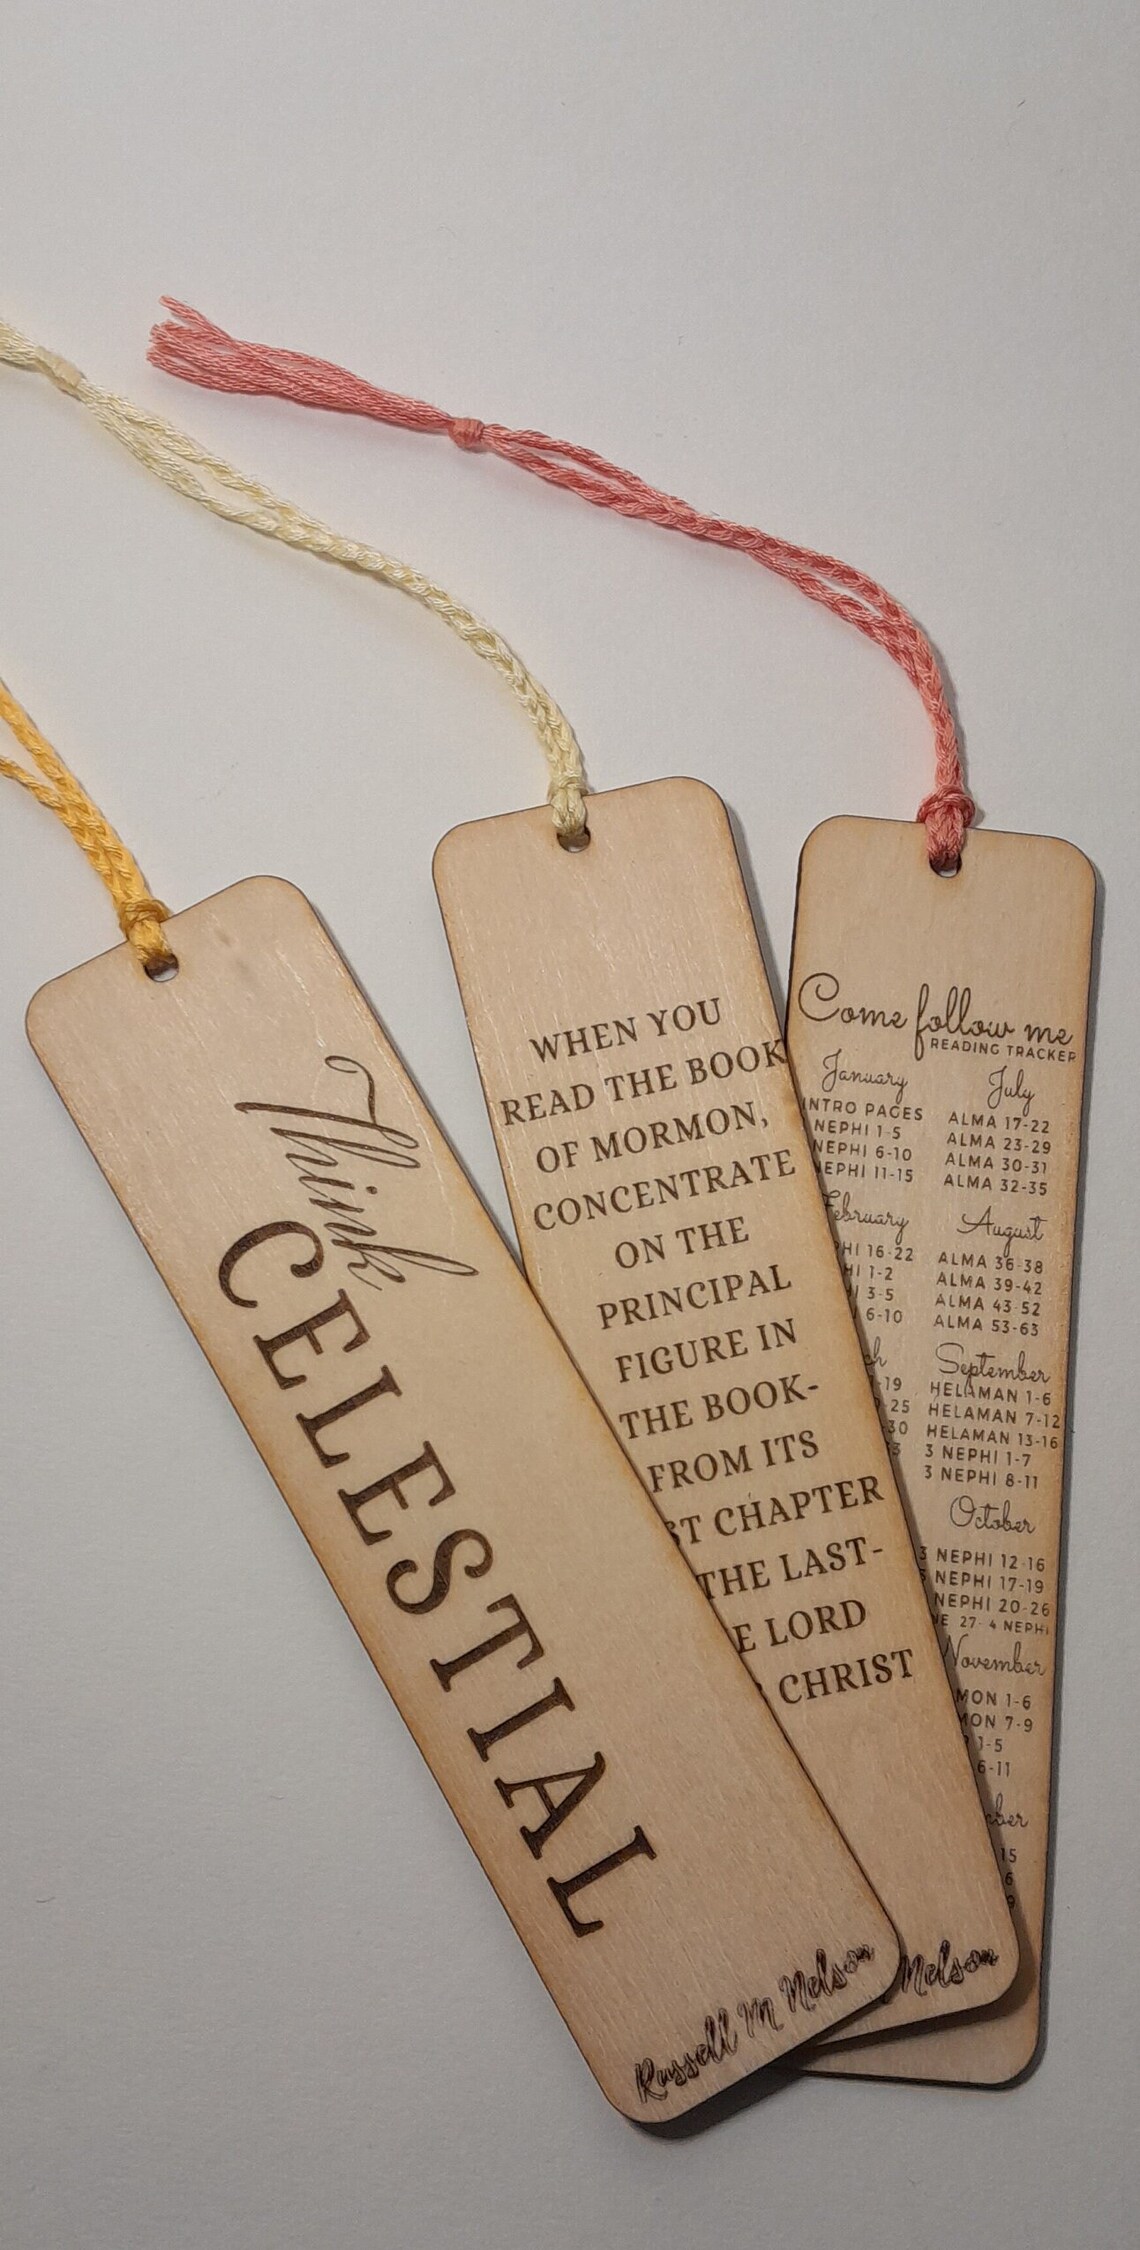 Think
CELESTIAL
Russell M Nelson
WHEN YOU
READ THE BOOK
OF MORMON,
CONCENTRATE
ON THE
PRINCIPAL
FIGURE IN
THE BOOK-
FROM ITS
ST CHAPTER
THE LAST-
E LORD
CHRIST
Nelson
Come follow me
READING TRACKER
January
INTRO PAGES
NEPHI 1-5
NEPHI 6-10
NEPHI 11-15
February
PHI 16-22
HI 1-2
I 3-5
6-10
ch
-19
-25
-30
3
July
ALMA 17-22
ALMA 23-29
ALMA 30-31
ALMA 32-35
August
ALMA 36-38
ALMA 39-42
ALMA 43-52
ALMA 53-63
September
HELAMAN 1-6
HELAMAN 7-12
HELAMAN 13-16
3 NEPHI 1-7
3 NEPHI 8-11
October
3 NEPHI 12-16
3 NEPHI 17-19
NEPHI 20-26
NE 27- 4 NEPHI
November
MON 1-6
MON 7-9
1-5
6-11
ber
15
6
9